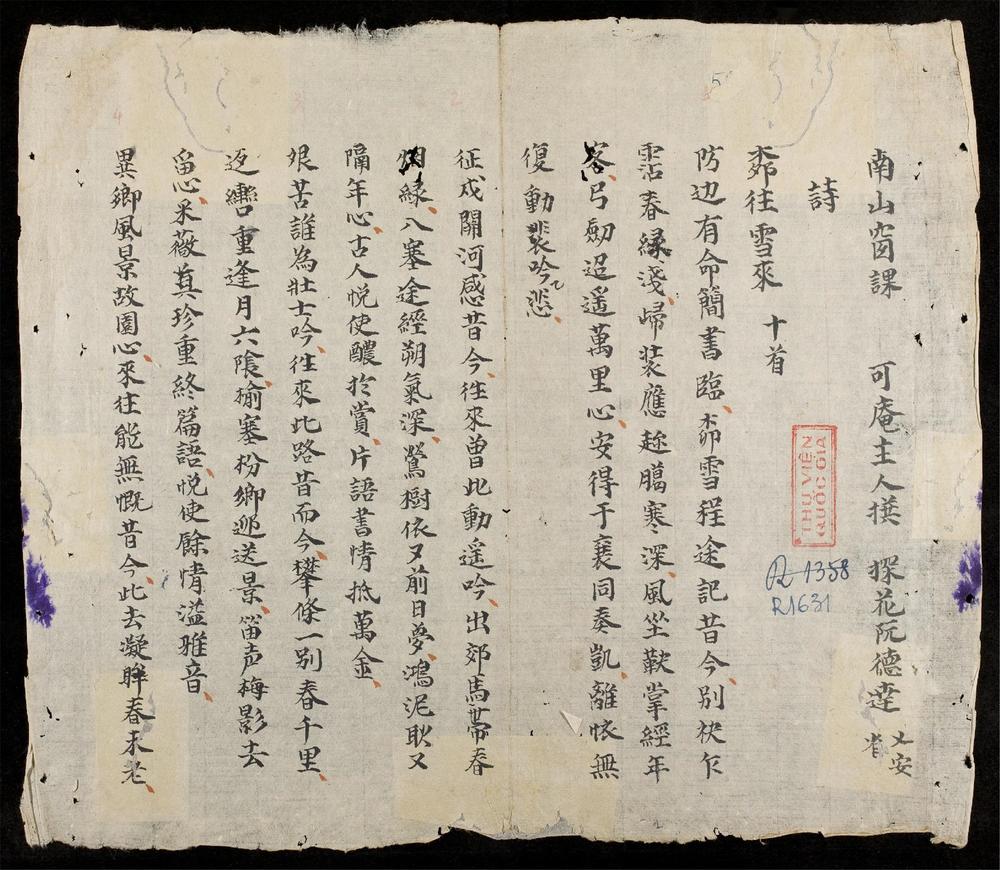 南山窗課 可庵主人撰 探花阮德達 乂安省
詩
桺往雪來 十首
防边有命簡書臨、桺雪程途記昔今、别袂乍
霑春緑淺、歸裝應趂臈寒深、風坐鞍掌經年
客、弓劍迢遥萬里心、安得于襄同奏凱、離懷無
復動裴吟悲、
征戍關河感昔今、往來曾此動遥吟、出郊馬帶春
烟緑、入塞途經朔氣深、鶯樹依又前日夢、鴻泥耿又
隔年心、古人悦使醲於賞、片語書情抵萬金、
艱苦誰為壯士吟、往來此路昔而今、攀條一别春千里、
返轡重逢月六陰、榆塞枌鄉迎送景、笛声梅影去
畱心、采薇莫珍重終篇語、悦使餘情溢雅音、
異鄉風景故園心、來往能無慨昔今、此去凝眸春未老、
THƯ VIỆN
QUỐC GIA
R 1358
R1631